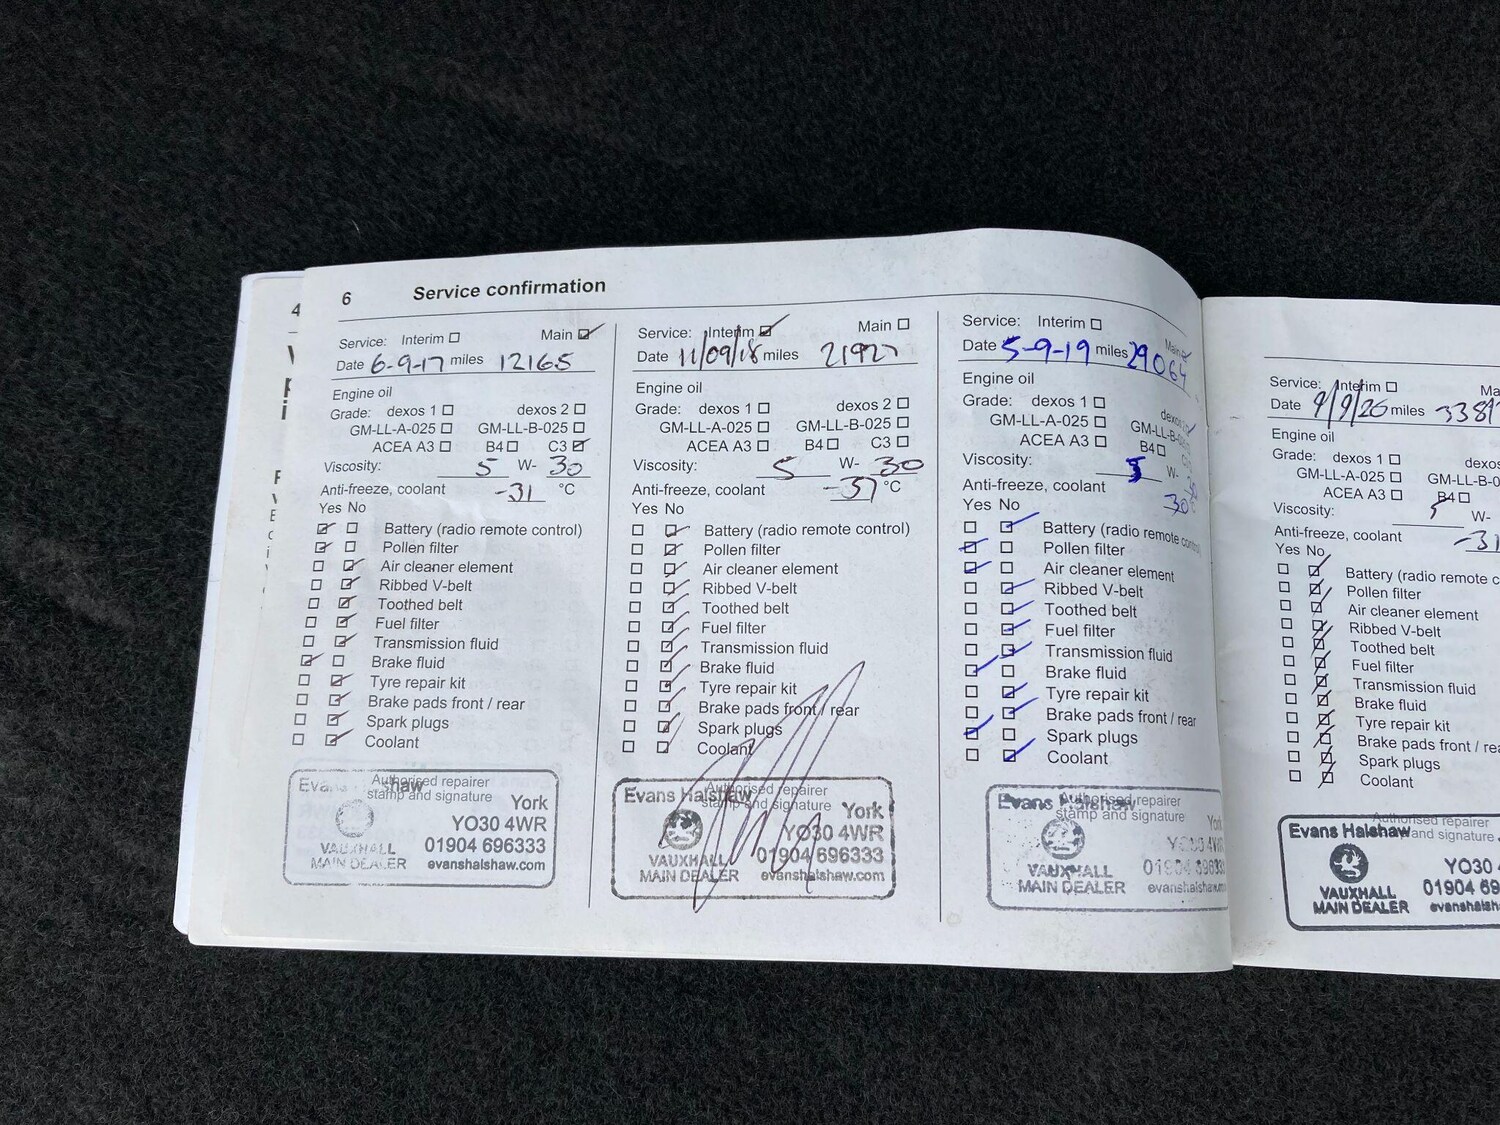 4
6 Service confirmation
Service: Interim Main
Date 6-9-17 miles 12165
Engine oil
Grade: dexos 1 dexos 2
GM-LL-A-025 GM-LL-B-025
ACEA A3 B4 C3
Viscosity: 5 W- 30
Anti-freeze, coolant -31 °C
Yes No
Battery (radio remote control)
Pollen filter
Air cleaner element
Ribbed V-belt
Toothed belt
Fuel filter
Transmission fluid
Brake fluid
Tyre repair kit
Brake pads front / rear
Spark plugs
Coolant
Authorised repairer
stamp and signature
York
YO30 4WR
VAUXHALL 01904 696333
MAIN DEALER evanshalshaw.com
Service: Interim Main
Date 11/09/18 miles 21927
Engine oil
Grade: dexos 1 dexos 2
GM-LL-A-025 GM-LL-B-025
ACEA A3 B4 C3
Viscosity: 5 W- 30
Anti-freeze, coolant -37 °C
Yes No
Battery (radio remote control)
Pollen filter
Air cleaner element
Ribbed V-belt
Toothed belt
Fuel filter
Transmission fluid
Brake fluid
Tyre repair kit
Brake pads front / rear
Spark plugs
Coolant
Authorised repairer
stamp and signature
Evans Halshaw York
YO30 4WR
VAUXHALL 01904 696333
MAIN DEALER evanshalshaw.com
Service: Interim Main
Date 5-9-19 miles 29064
Engine oil
Grade: dexos 1 dexos
GM-LL-A-025 GM-LL-B-02
ACEA A3 B4
Viscosity: 5 W-
Anti-freeze, coolant
Yes No
Battery (radio remote
Pollen filter
Air cleaner element
Ribbed V-belt
Toothed belt
Fuel filter
Transmission fluid
Brake fluid
Tyre repair kit
Brake pads front / rear
Spark plugs
Coolant
Authorised repairer
stamp and signature
Evans Halshaw
VAUXHALL
MAIN DEALER evanshalshaw
Service: Interim Ma
Date 9/9/20 miles 338
Engine oil
Grade: dexos 1 dexos
GM-LL-A-025 GM-LL-B-0
ACEA A3 B4
Viscosity: 5 W-
Anti-freeze, coolant -31
Yes No
Battery (radio remote c
Pollen filter
Air cleaner element
Ribbed V-belt
Toothed belt
Fuel filter
Transmission fluid
Brake fluid
Tyre repair kit
Brake pads front / rea
Spark plugs
Coolant
Authorised repairer
and signature
Evans Halshaw
YO30
VAUXHALL 01904 69
MAIN DEALER evanshalsh